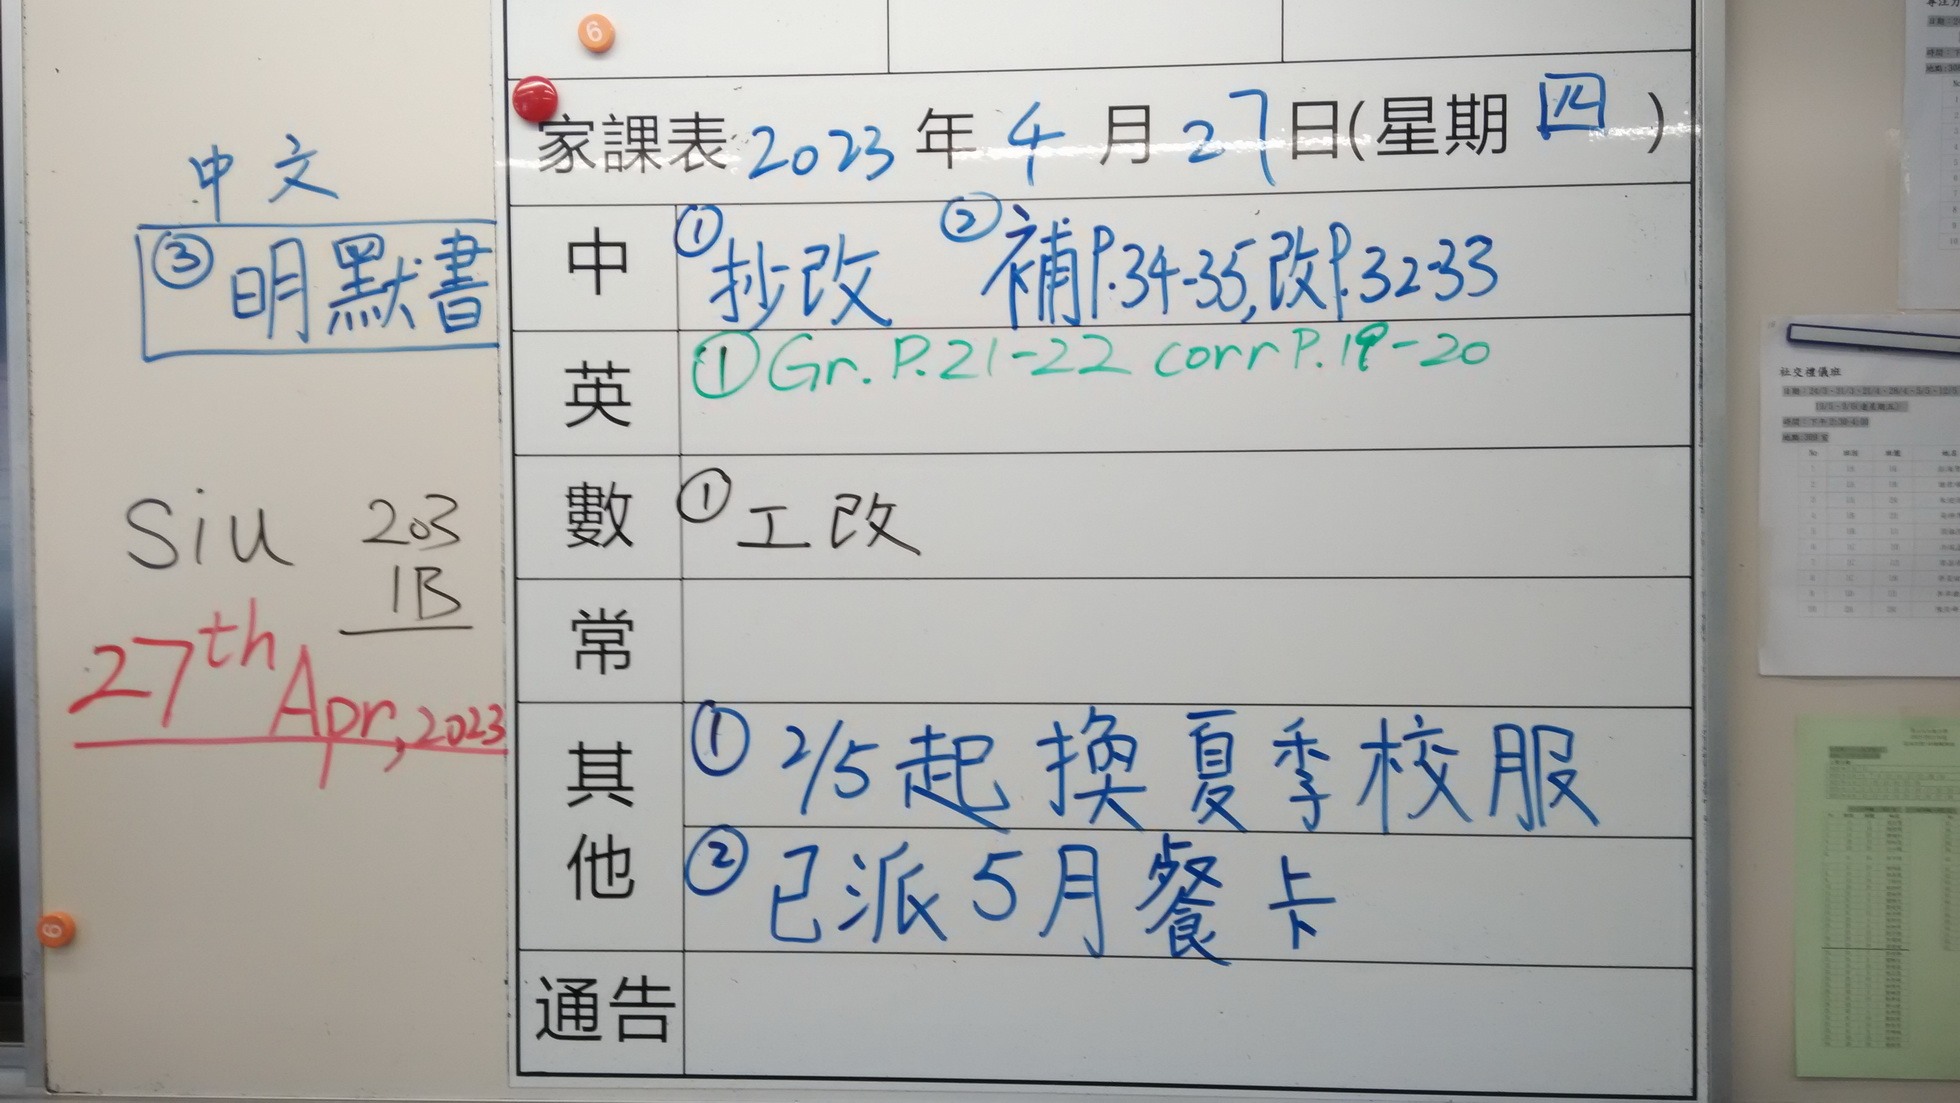 家課表 2023 年 4 月 27 日(星期 四 )
中文
③ 明默書
中 ① 抄改 ② 補P.34-35,改P.32-33
英 ① Gr. P.21-22 corr P.19-20
數 ① 工改
Siu 203
1B
27th Apr, 2023
常
其他 ① 2/5起換夏季校服
② 已派5月餐卡
通告
6
6
社交禮儀班